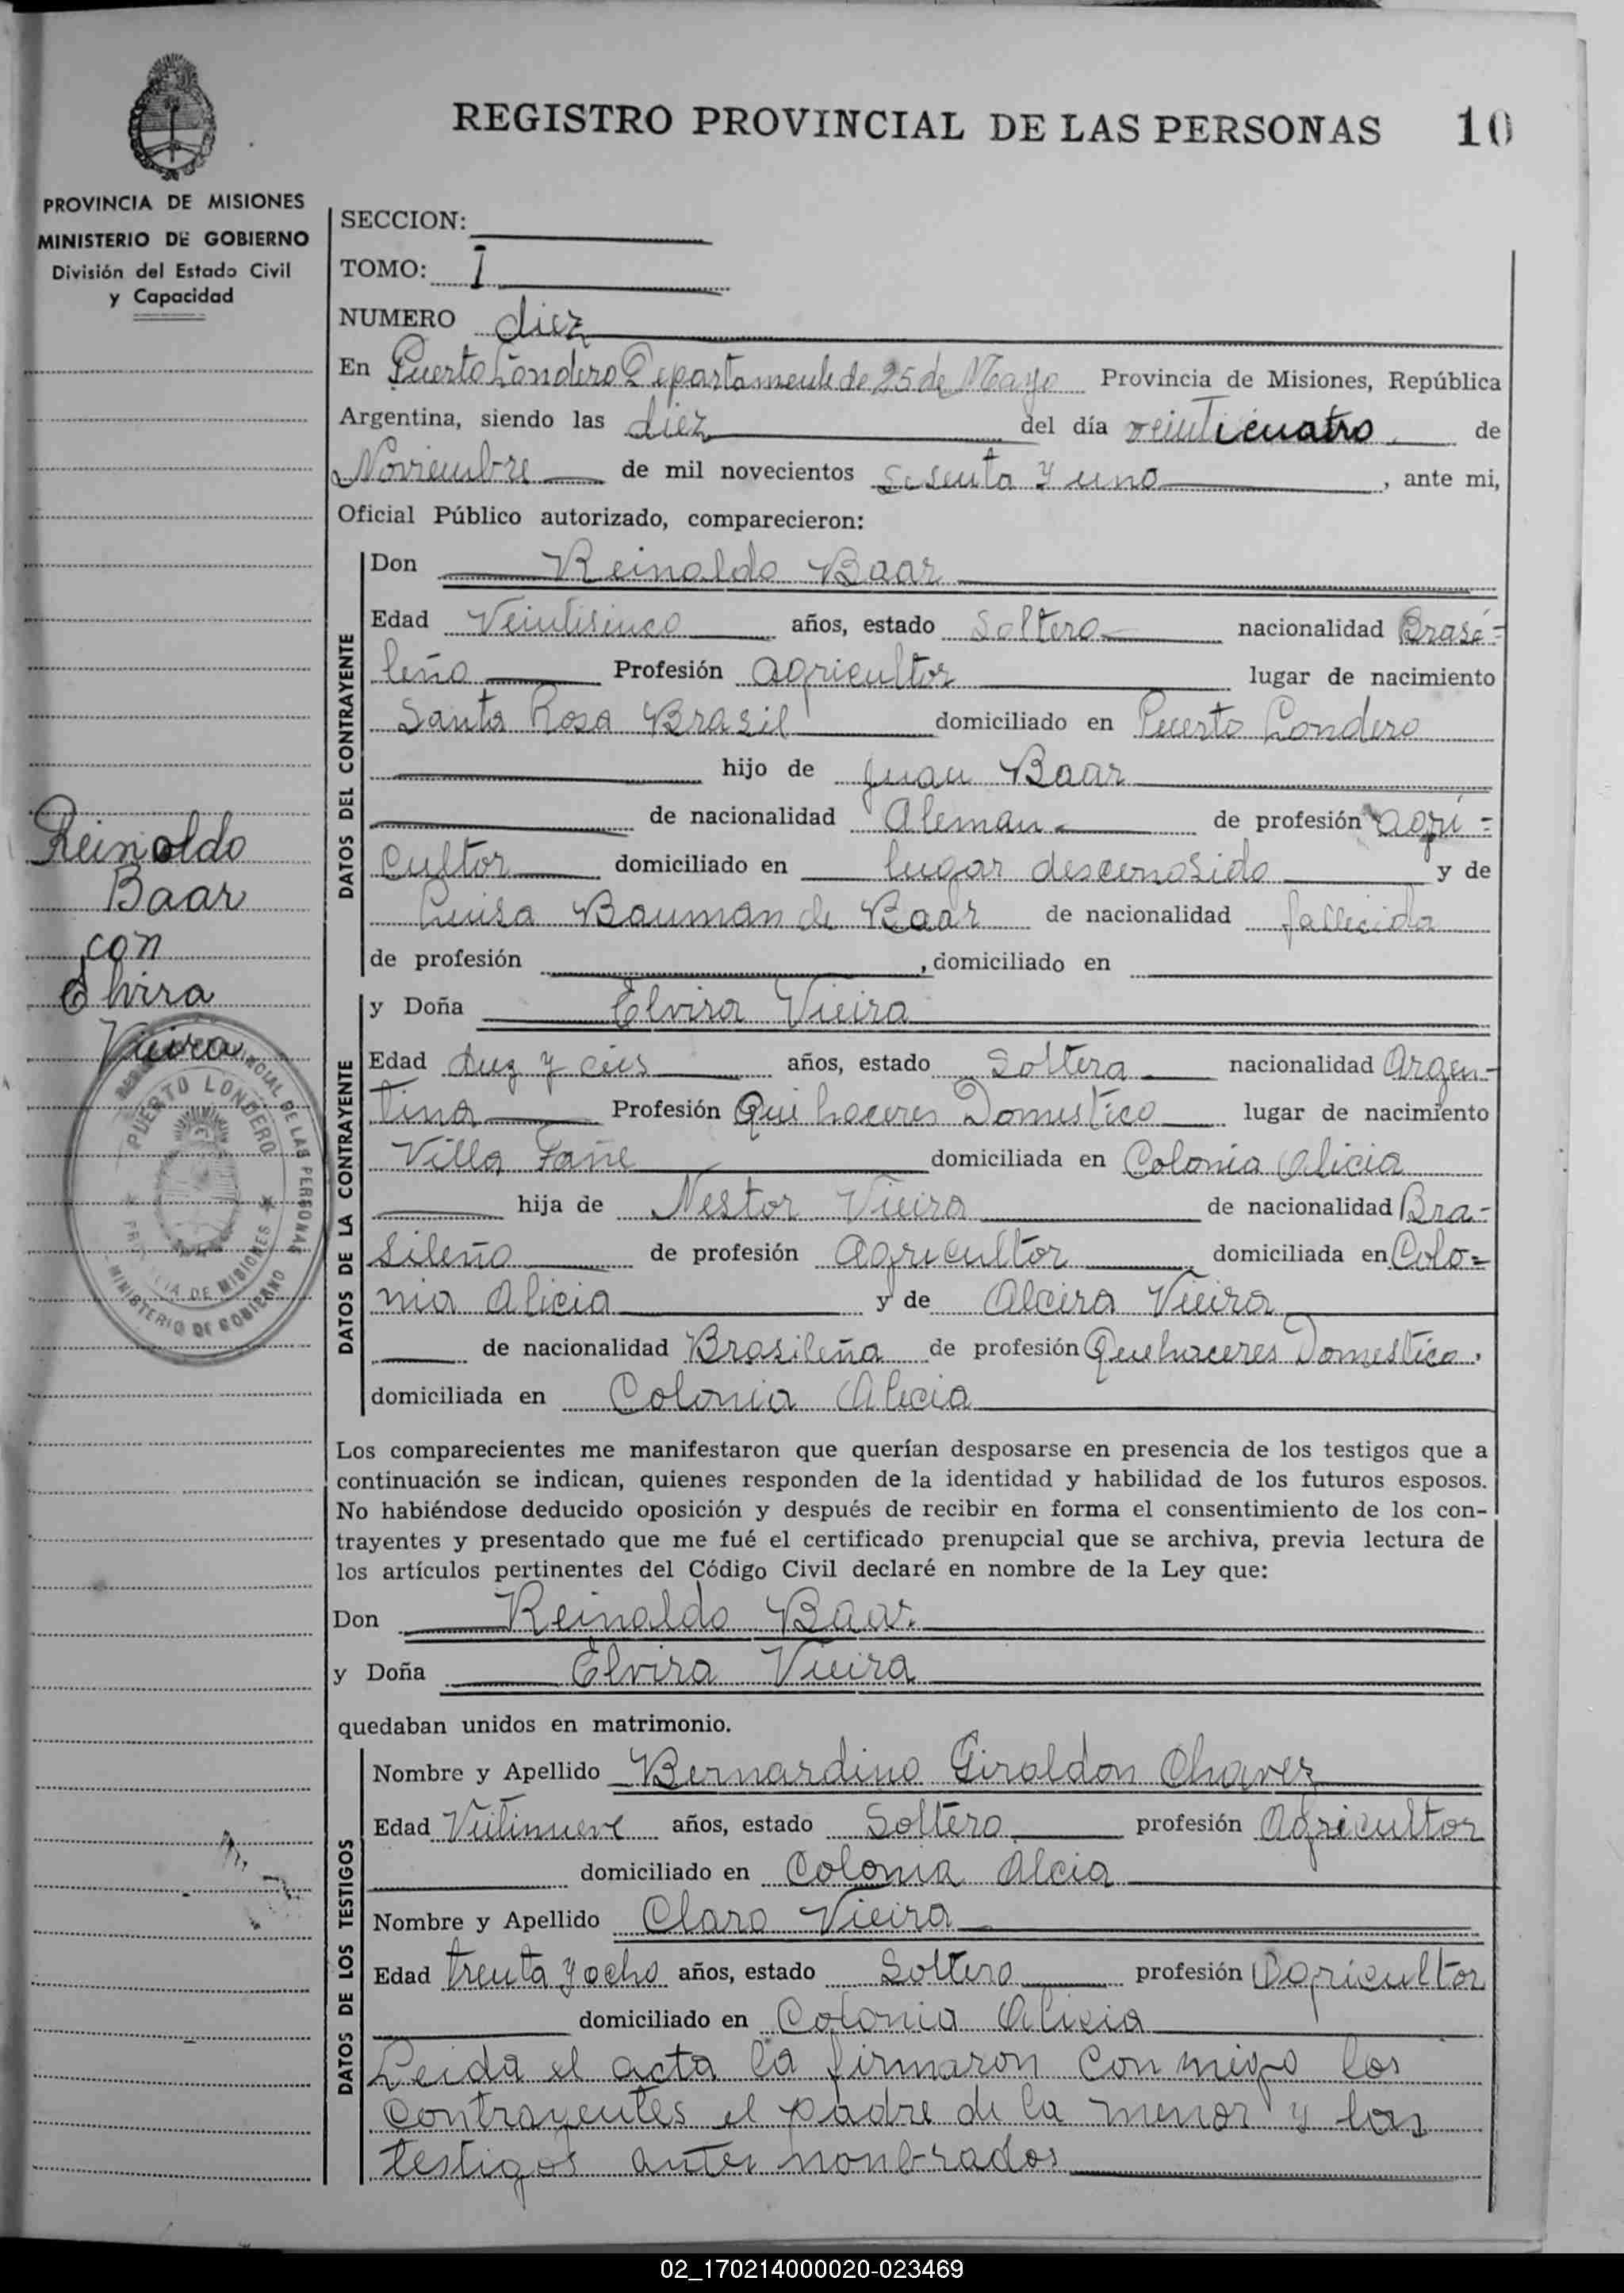 REGISTRO PROVINCIAL DE LAS PERSONAS 10
PROVINCIA DE MISIONES
MINISTERIO DE GOBIERNO
División del Estado Civil
y Capacidad
SECCION:
TOMO: I
NUMERO diez
En Puerto Londero Departamente de 25 de Mayo Provincia de Misiones, República
Argentina, siendo las diez del día veinticuatro de
Noviembre de mil novecientos sesenta y uno, ante mi,
Oficial Público autorizado, comparecieron:
DATOS DEL CONTRAYENTE
Don Reinaldo Baar
Edad Veintisinco años, estado Soltero nacionalidad Brasi=
leño Profesión agricultor lugar de nacimiento
Santa Rosa Brasil domiciliado en Puerto Londero
hijo de Juan Baar
de nacionalidad Aleman de profesión agri=
cultor domiciliado en lugar desconosido y de
Luisa Bauman de Baar de nacionalidad fallecida
de profesión , domiciliado en
Reinoldo
Baar
con
Elvira
Vieira
DATOS DE LA CONTRAYENTE
y Doña Elvira Vieira
Edad diez y años, estado Soltera nacionalidad Argen-
tina Profesión Que haceres Domestico lugar de nacimiento
Villa Fañe domiciliada en Colonia Alicia
hija de Nestor Vieira de nacionalidad Bra-
sileño de profesión agricultor domiciliada en Colo=
nia Alicia y de Alcira Vieira
de nacionalidad Brasileña de profesión Quehaceres Domestico,
domiciliada en Colonia Alicia
PUERTO LONDERO
PROVINCIAL DE LAS PERSONAS
PROVINCIA DE MISIONES
MINISTERIO DE GOBIERNO
Los comparecientes me manifestaron que querían desposarse en presencia de los testigos que a
continuación se indican, quienes responden de la identidad y habilidad de los futuros esposos.
No habiéndose deducido oposición y después de recibir en forma el consentimiento de los con-
trayentes y presentado que me fué el certificado prenupcial que se archiva, previa lectura de
los artículos pertinentes del Código Civil declaré en nombre de la Ley que:
Don Reinaldo Baar
y Doña Elvira Vieira
quedaban unidos en matrimonio.
DATOS DE LOS TESTIGOS
Nombre y Apellido Bernardino Giraldon Chavez
Edad años, estado Soltero profesión Agricultor
domiciliado en Colonia Alcia
Nombre y Apellido Claro Vieira
Edad treuta y ocho años, estado Soltero profesión Agricultor
domiciliado en Colonia Alicia
Leida el acta la firmaron conmigo los
contrayentes el padre de la menor y los
testigos antes nonbrados
02_170214000020-023469